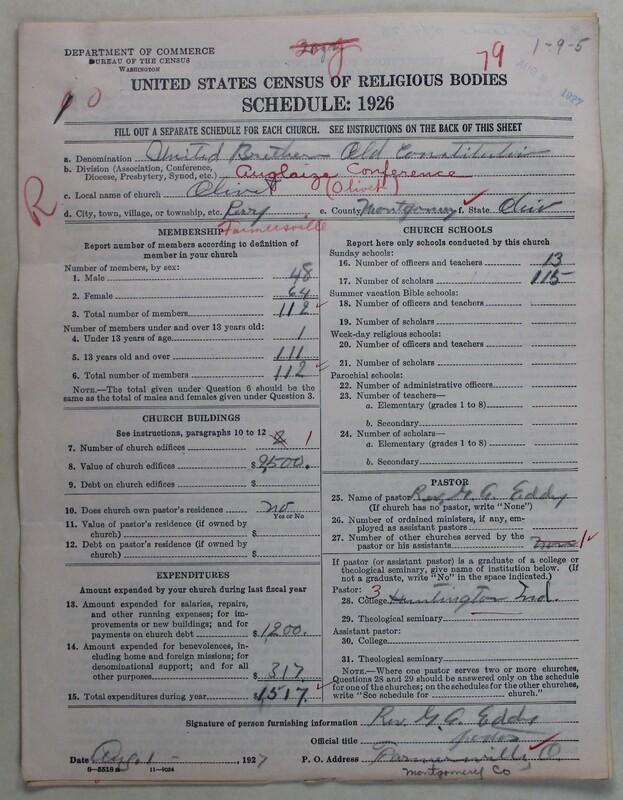 DEPARTMENT OF COMMERCE
BUREAU OF THE CENSUS
WASHINGTON
79 1-9-5
1927
UNITED STATES CENSUS OF RELIGIOUS BODIES
SCHEDULE: 1926
FILL OUT A SEPARATE SCHEDULE FOR EACH CHURCH. SEE INSTRUCTIONS ON THE BACK OF THIS SHEET
a. Denomination United Brethren Old Constitution
b. Division (Association, Conference, Diocese, Presbytery, Synod, etc.) Auglaize Conference
c. Local name of church Olivet (Olivet)
R
d. City, town, village, or township, etc. Perry e. County Montgomery f. State Ohio
Farmersville
MEMBERSHIP
Report number of members according to definition of
member in your church
Number of members, by sex:
1. Male 48
2. Female 64
3. Total number of members 112
Number of members under and over 13 years old:
4. Under 13 years of age 1
5. 13 years old and over 111
6. Total number of members 112
NOTE.—The total given under Question 6 should be
same as the total of males and females given under Question 3.
CHURCH BUILDINGS
See instructions, paragraphs 10 to 12
7. Number of church edifices 1
8. Value of church edifices $ 9,500.
9. Debt on church edifices $
10. Does church own pastor's residence no
Yes or No
11. Value of pastor's residence (if owned by
church) $
12. Debt on pastor's residence (if owned by
church) $
EXPENDITURES
Amount expended by your church during last fiscal year
13. Amount expended for salaries, repairs,
and other running expenses; for im-
provements or new buildings; and for
payments on church debt $ 1200.
14. Amount expended for benevolences, in-
cluding home and foreign missions; for
denominational support; and for all
other purposes $ 317
15. Total expenditures during year $ 1517
CHURCH SCHOOLS
Report here only schools conducted by this church
Sunday schools:
16. Number of officers and teachers 13
17. Number of scholars 115
Summer vacation Bible schools:
18. Number of officers and teachers
19. Number of scholars
Week-day religious schools:
20. Number of officers and teachers
21. Number of scholars
Parochial schools:
22. Number of administrative officers
23. Number of teachers—
a. Elementary (grades 1 to 8)
b. Secondary
24. Number of scholars—
a. Elementary (grades 1 to 8)
b. Secondary
PASTOR
25. Name of pastor Rev. G. A. Eddy
(If church has no pastor, write "None")
26. Number of ordained ministers, if any, em-
ployed as assistant pastors
27. Number of other churches served by the
pastor or his assistants 1
If pastor (or assistant pastor) is a graduate of a college or
theological seminary, give name of institution below. (If
not a graduate, write "No" in the space indicated.)
Pastor: 3
28. College Huntington Ind.
29. Theological seminary
Assistant pastor:
30. College
31. Theological seminary
NOTE.—Where one pastor serves two or more churches,
Questions 28 and 29 should be answered only on the schedule
for one of the churches; on the schedules for the other churches,
write "See schedule for church."
Signature of person furnishing information Rev. G. A. Eddy
Official title pastor
Date Aug. 1, 1927 P. O. Address Farmersville O.
8—5518 a 11—9034 Montgomery Co